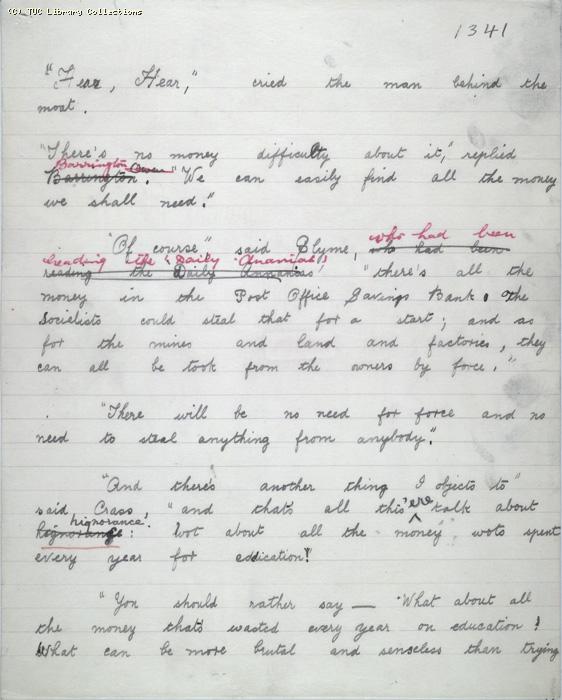 (C) TUC Library Collections
1341
"Hear, Hear," cried the man behind the
moat.
"There's no money difficulty about it," replied
Barrington Owen
Barrington. "We can easily find all the money
we shall need."
"Of course" said Slyme, who had been
who had been
reading the "Daily Ananias"
reading the Daily Annanias' "there's all the
money in the Post Office Savings Bank. The
Socielists could steal that for a start; and as
for the mines and land and factories, they
can all be took from the owners by force."
"There will be no need for force and no
need to steal anything from anybody".
"And there's another thing I objects to"
said Crass, "and thats all this 'ere talk about
hignorance.
hignorance: wot about all the money wots spent
every year for edication!"
"You should rather say — 'What about all
the money thats wasted every year on education!
What can be more brutal and senseless than trying